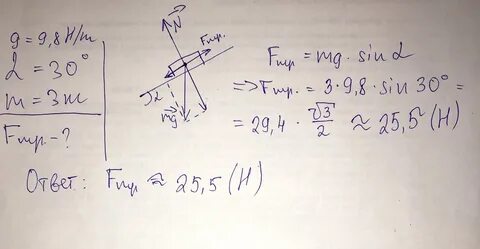 g = 9,8 Н/m
α = 30°
m = 3 m
Fтр. - ?
N
Fтр.
α
mg
Fтр. = mg · sin α
=> Fтр. = 3 · 9,8 · sin 30° =
= 29,4 · √3/2 ≈ 25,5 (Н)
Ответ: Fтр. ≈ 25,5 (Н)